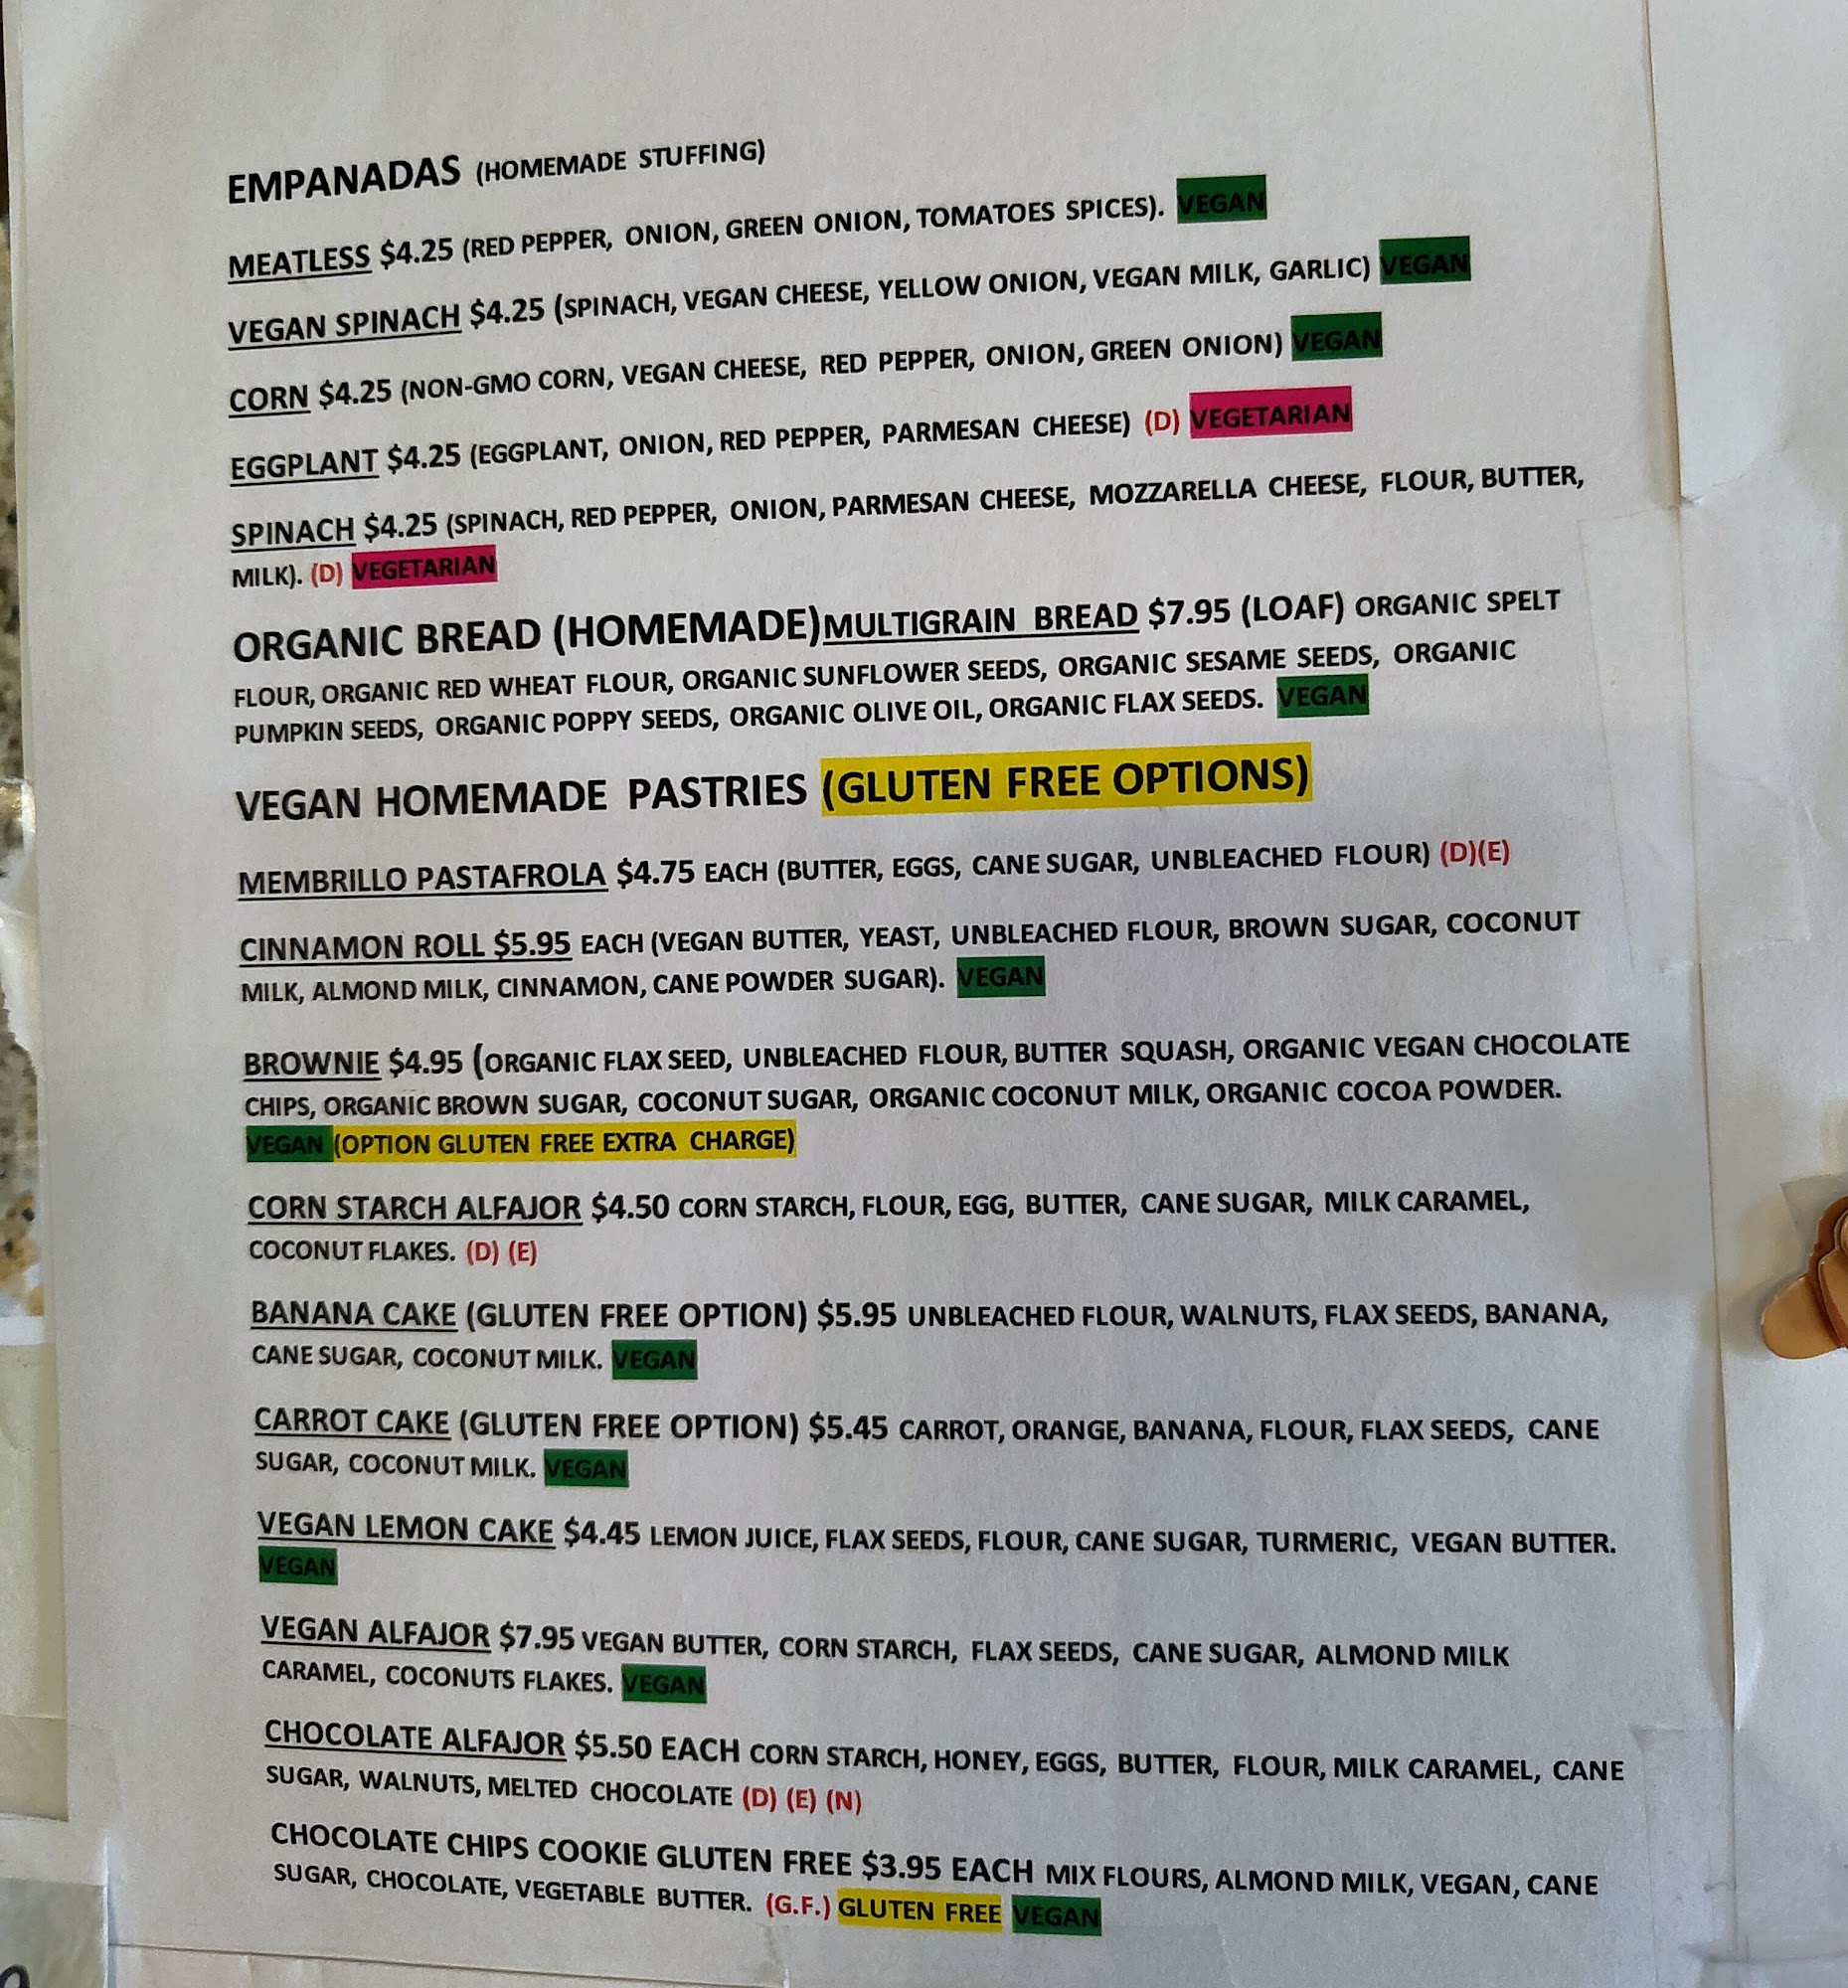 EMPANADAS (HOMEMADE STUFFING)
MEATLESS $4.25 (RED PEPPER, ONION, GREEN ONION, TOMATOES SPICES). VEGAN
VEGAN SPINACH $4.25 (SPINACH, VEGAN CHEESE, YELLOW ONION, VEGAN MILK, GARLIC) VEGAN
CORN $4.25 (NON-GMO CORN, VEGAN CHEESE, RED PEPPER, ONION, GREEN ONION) VEGAN
EGGPLANT $4.25 (EGGPLANT, ONION, RED PEPPER, PARMESAN CHEESE) (D) VEGETARIAN
SPINACH $4.25 (SPINACH, RED PEPPER, ONION, PARMESAN CHEESE, MOZZARELLA CHEESE, FLOUR, BUTTER,
MILK). (D) VEGETARIAN
ORGANIC BREAD (HOMEMADE)MULTIGRAIN BREAD $7.95 (LOAF) ORGANIC SPELT
FLOUR, ORGANIC RED WHEAT FLOUR, ORGANIC SUNFLOWER SEEDS, ORGANIC SESAME SEEDS, ORGANIC
PUMPKIN SEEDS, ORGANIC POPPY SEEDS, ORGANIC OLIVE OIL, ORGANIC FLAX SEEDS. VEGAN
VEGAN HOMEMADE PASTRIES (GLUTEN FREE OPTIONS)
MEMBRILLO PASTAFROLA $4.75 EACH (BUTTER, EGGS, CANE SUGAR, UNBLEACHED FLOUR) (D)(E)
CINNAMON ROLL $5.95 EACH (VEGAN BUTTER, YEAST, UNBLEACHED FLOUR, BROWN SUGAR, COCONUT
MILK, ALMOND MILK, CINNAMON, CANE POWDER SUGAR). VEGAN
BROWNIE $4.95 (ORGANIC FLAX SEED, UNBLEACHED FLOUR, BUTTER SQUASH, ORGANIC VEGAN CHOCOLATE
CHIPS, ORGANIC BROWN SUGAR, COCONUT SUGAR, ORGANIC COCONUT MILK, ORGANIC COCOA POWDER.
VEGAN (OPTION GLUTEN FREE EXTRA CHARGE)
CORN STARCH ALFAJOR $4.50 CORN STARCH, FLOUR, EGG, BUTTER, CANE SUGAR, MILK CARAMEL,
COCONUT FLAKES. (D) (E)
BANANA CAKE (GLUTEN FREE OPTION) $5.95 UNBLEACHED FLOUR, WALNUTS, FLAX SEEDS, BANANA,
CANE SUGAR, COCONUT MILK. VEGAN
CARROT CAKE (GLUTEN FREE OPTION) $5.45 CARROT, ORANGE, BANANA, FLOUR, FLAX SEEDS, CANE
SUGAR, COCONUT MILK. VEGAN
VEGAN LEMON CAKE $4.45 LEMON JUICE, FLAX SEEDS, FLOUR, CANE SUGAR, TURMERIC, VEGAN BUTTER.
VEGAN
VEGAN ALFAJOR $7.95 VEGAN BUTTER, CORN STARCH, FLAX SEEDS, CANE SUGAR, ALMOND MILK
CARAMEL, COCONUTS FLAKES. VEGAN
CHOCOLATE ALFAJOR $5.50 EACH CORN STARCH, HONEY, EGGS, BUTTER, FLOUR, MILK CARAMEL, CANE
SUGAR, WALNUTS, MELTED CHOCOLATE (D) (E) (N)
CHOCOLATE CHIPS COOKIE GLUTEN FREE $3.95 EACH MIX FLOURS, ALMOND MILK, VEGAN, CANE
SUGAR, CHOCOLATE, VEGETABLE BUTTER. (G.F.) GLUTEN FREE VEGAN